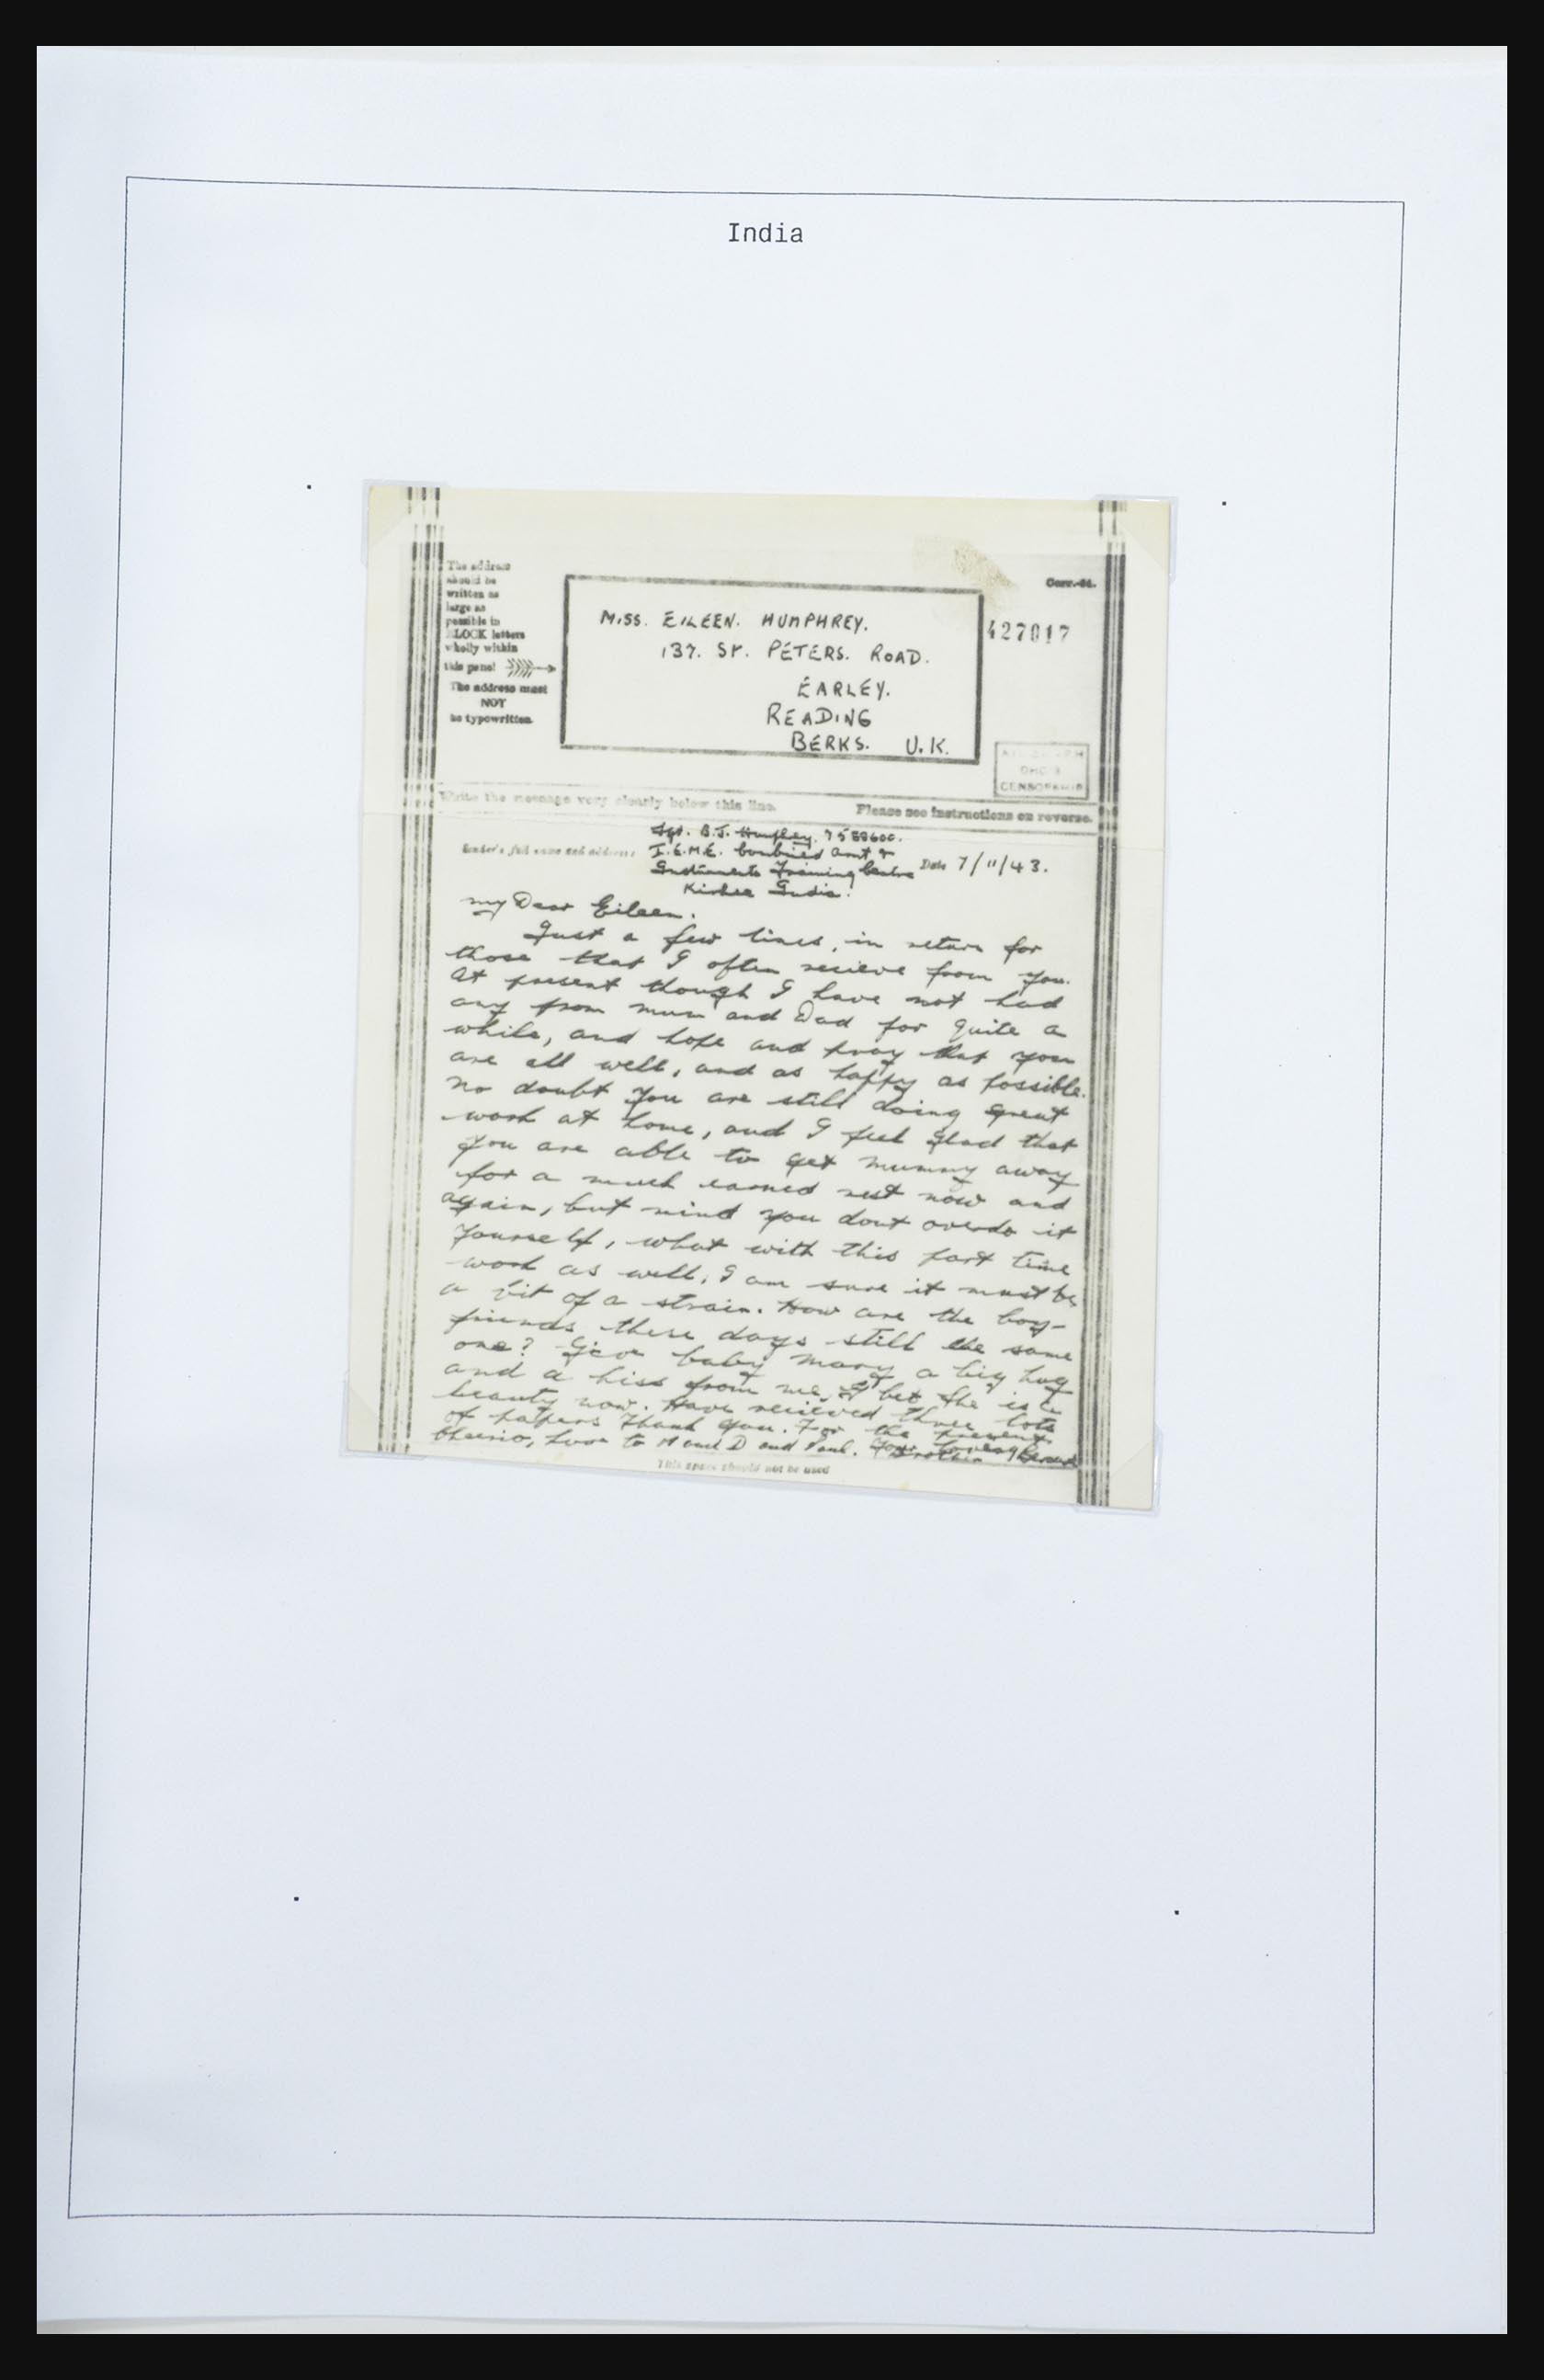 India
The address
should be
written as
large as
possible in
BLOCK letters
wholly within
this panel
The address must
NOT
be typewritten.
Corr.-64.
MISS. EILEEN. HUMPHREY.
137. ST. PETERS. ROAD.
EARLEY.
READING
BERKS. U.K.
427017
CENSORSHIP
Write the message very clearly below this line.
Please see instructions on reverse.
Sender's full name and address:
Sgt. B.J. Humphrey. 7588600.
I.E.M.E. Combined Armt &
Instruments Training Centre
Kirkee India.
Date 7/11/43.
My Dear Eileen.
Just a few lines, in return for
those that I often recieve from you.
At present though I have not had
any from mum and Dad for quite a
while, and hope and pray that you
are all well, and as happy as possible.
No doubt you are still doing great
work at home, and I feel glad that
you are able to get mummy away
for a much earned rest now and
again, but mind you dont overdo it
yourself, what with this part time
work as well, I am sure it must be
a bit of a strain. How are the boy-
friends these days still the same
one? Give baby Mary a big hug
and a kiss from me, I bet she is a
beauty now. Have recieved three lots
of papers Thank you. For the present
Cheerio, Love to M and D and Paul. Your loving
Brother Bernard
This space should not be used